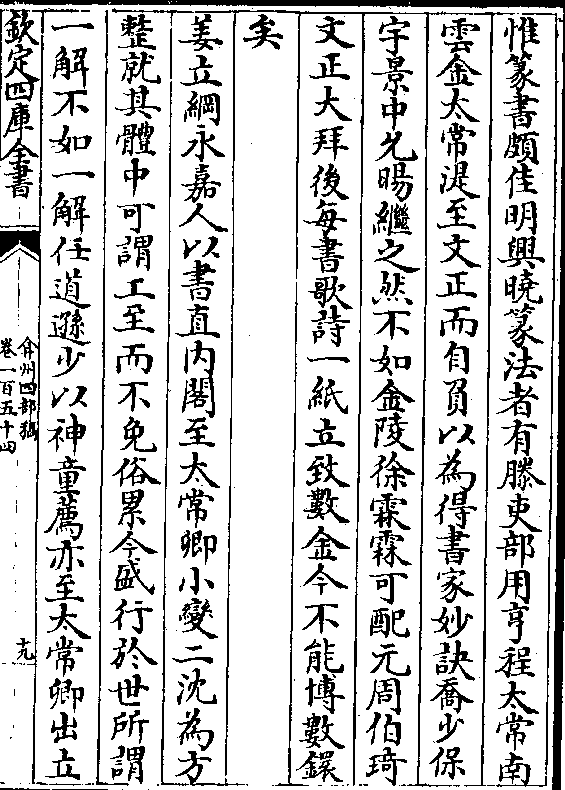 惟篆書頗佳明興曉篆法者有滕吏部用亨程太常南
雲金太常湜至文正而自負以為得書家妙訣喬少保
宇景中允暘繼之然不如金陵徐霖霖可配元周伯琦
文正大拜後每書歌詩一紙立致數金今不能博數鐶
矣
姜立綱永嘉人以書直內閣至太常卿小變二沈為方
整就其體中可謂工至而不免俗累今盛行於世所謂
一解不如一解任道遜少以神童薦亦至太常卿出立
欽定四庫全書
弇州四部稿
卷一百五十四
十九